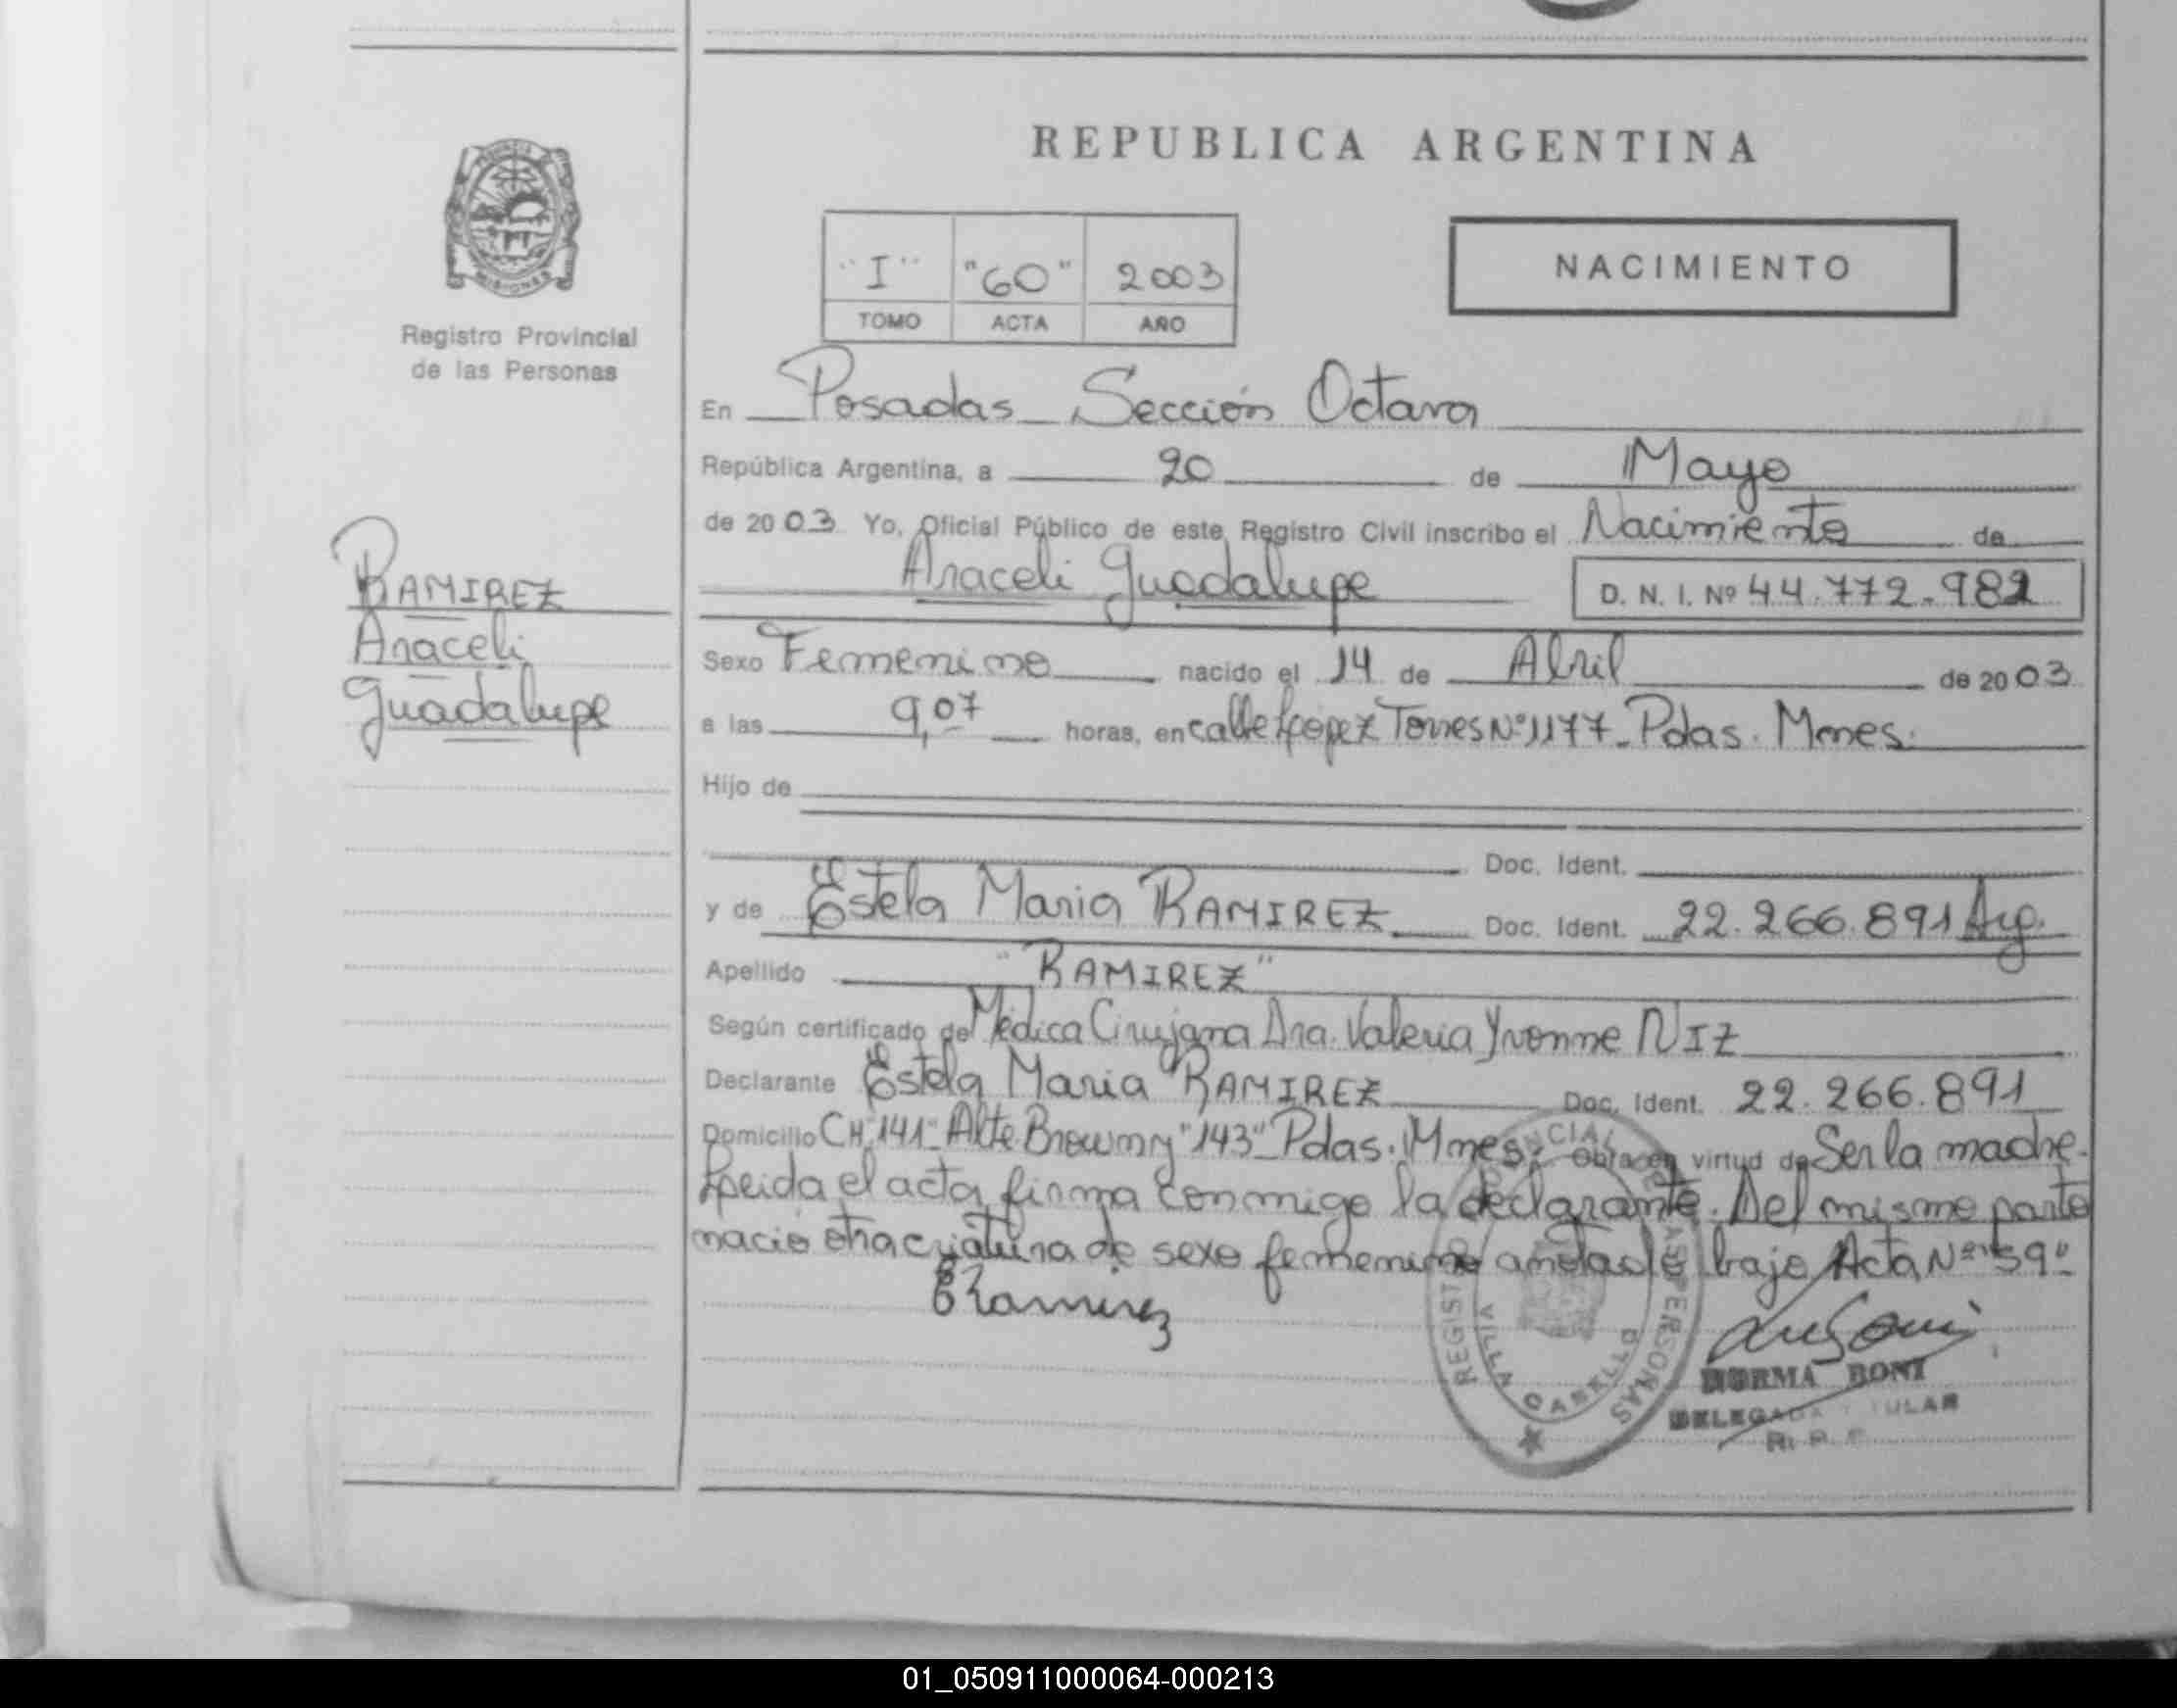 REPUBLICA ARGENTINA
MISIONES
Registro Provincial
de las Personas
"I" "60" 2003
TOMO ACTA AÑO
NACIMIENTO
En Posadas Sección Octava
República Argentina, a 20 de Mayo
de 2003 Yo, Oficial Público de este Registro Civil inscribo el Nacimiento de
Araceli Guadalupe D. N. I. Nº 44.772.982
RAMIREZ
Araceli
Guadalupe
Sexo Femenino nacido el 14 de Abril de 2003
a las 9,07 horas, en calle López Torres Nº 1177 - Pdas. Mnes.
Hijo de
Doc. Ident.
y de Estela Maria RAMIREZ Doc. Ident. 22.266.891 Arg.
Apellido "RAMIREZ"
Según certificado de Médica Cirujana Dra. Valeria Yvonne NIZ
Declarante Estela Maria RAMIREZ Doc. Ident. 22.266.891
Domicilio CH "141" Alte Browny "143" Pdas. Mnes. Obra en virtud de Ser la madre.
Leida el acta firma conmigo la declarante. Del mismo parto
nació otra criatura de sexo femenino anotado bajo Acta Nº "59"
E Ramirez
REGIST PERSONAS
VILLA CABELLO
NORMA BONI
DELEGADA TITULAR
R. P. P.
01_050911000064-000213